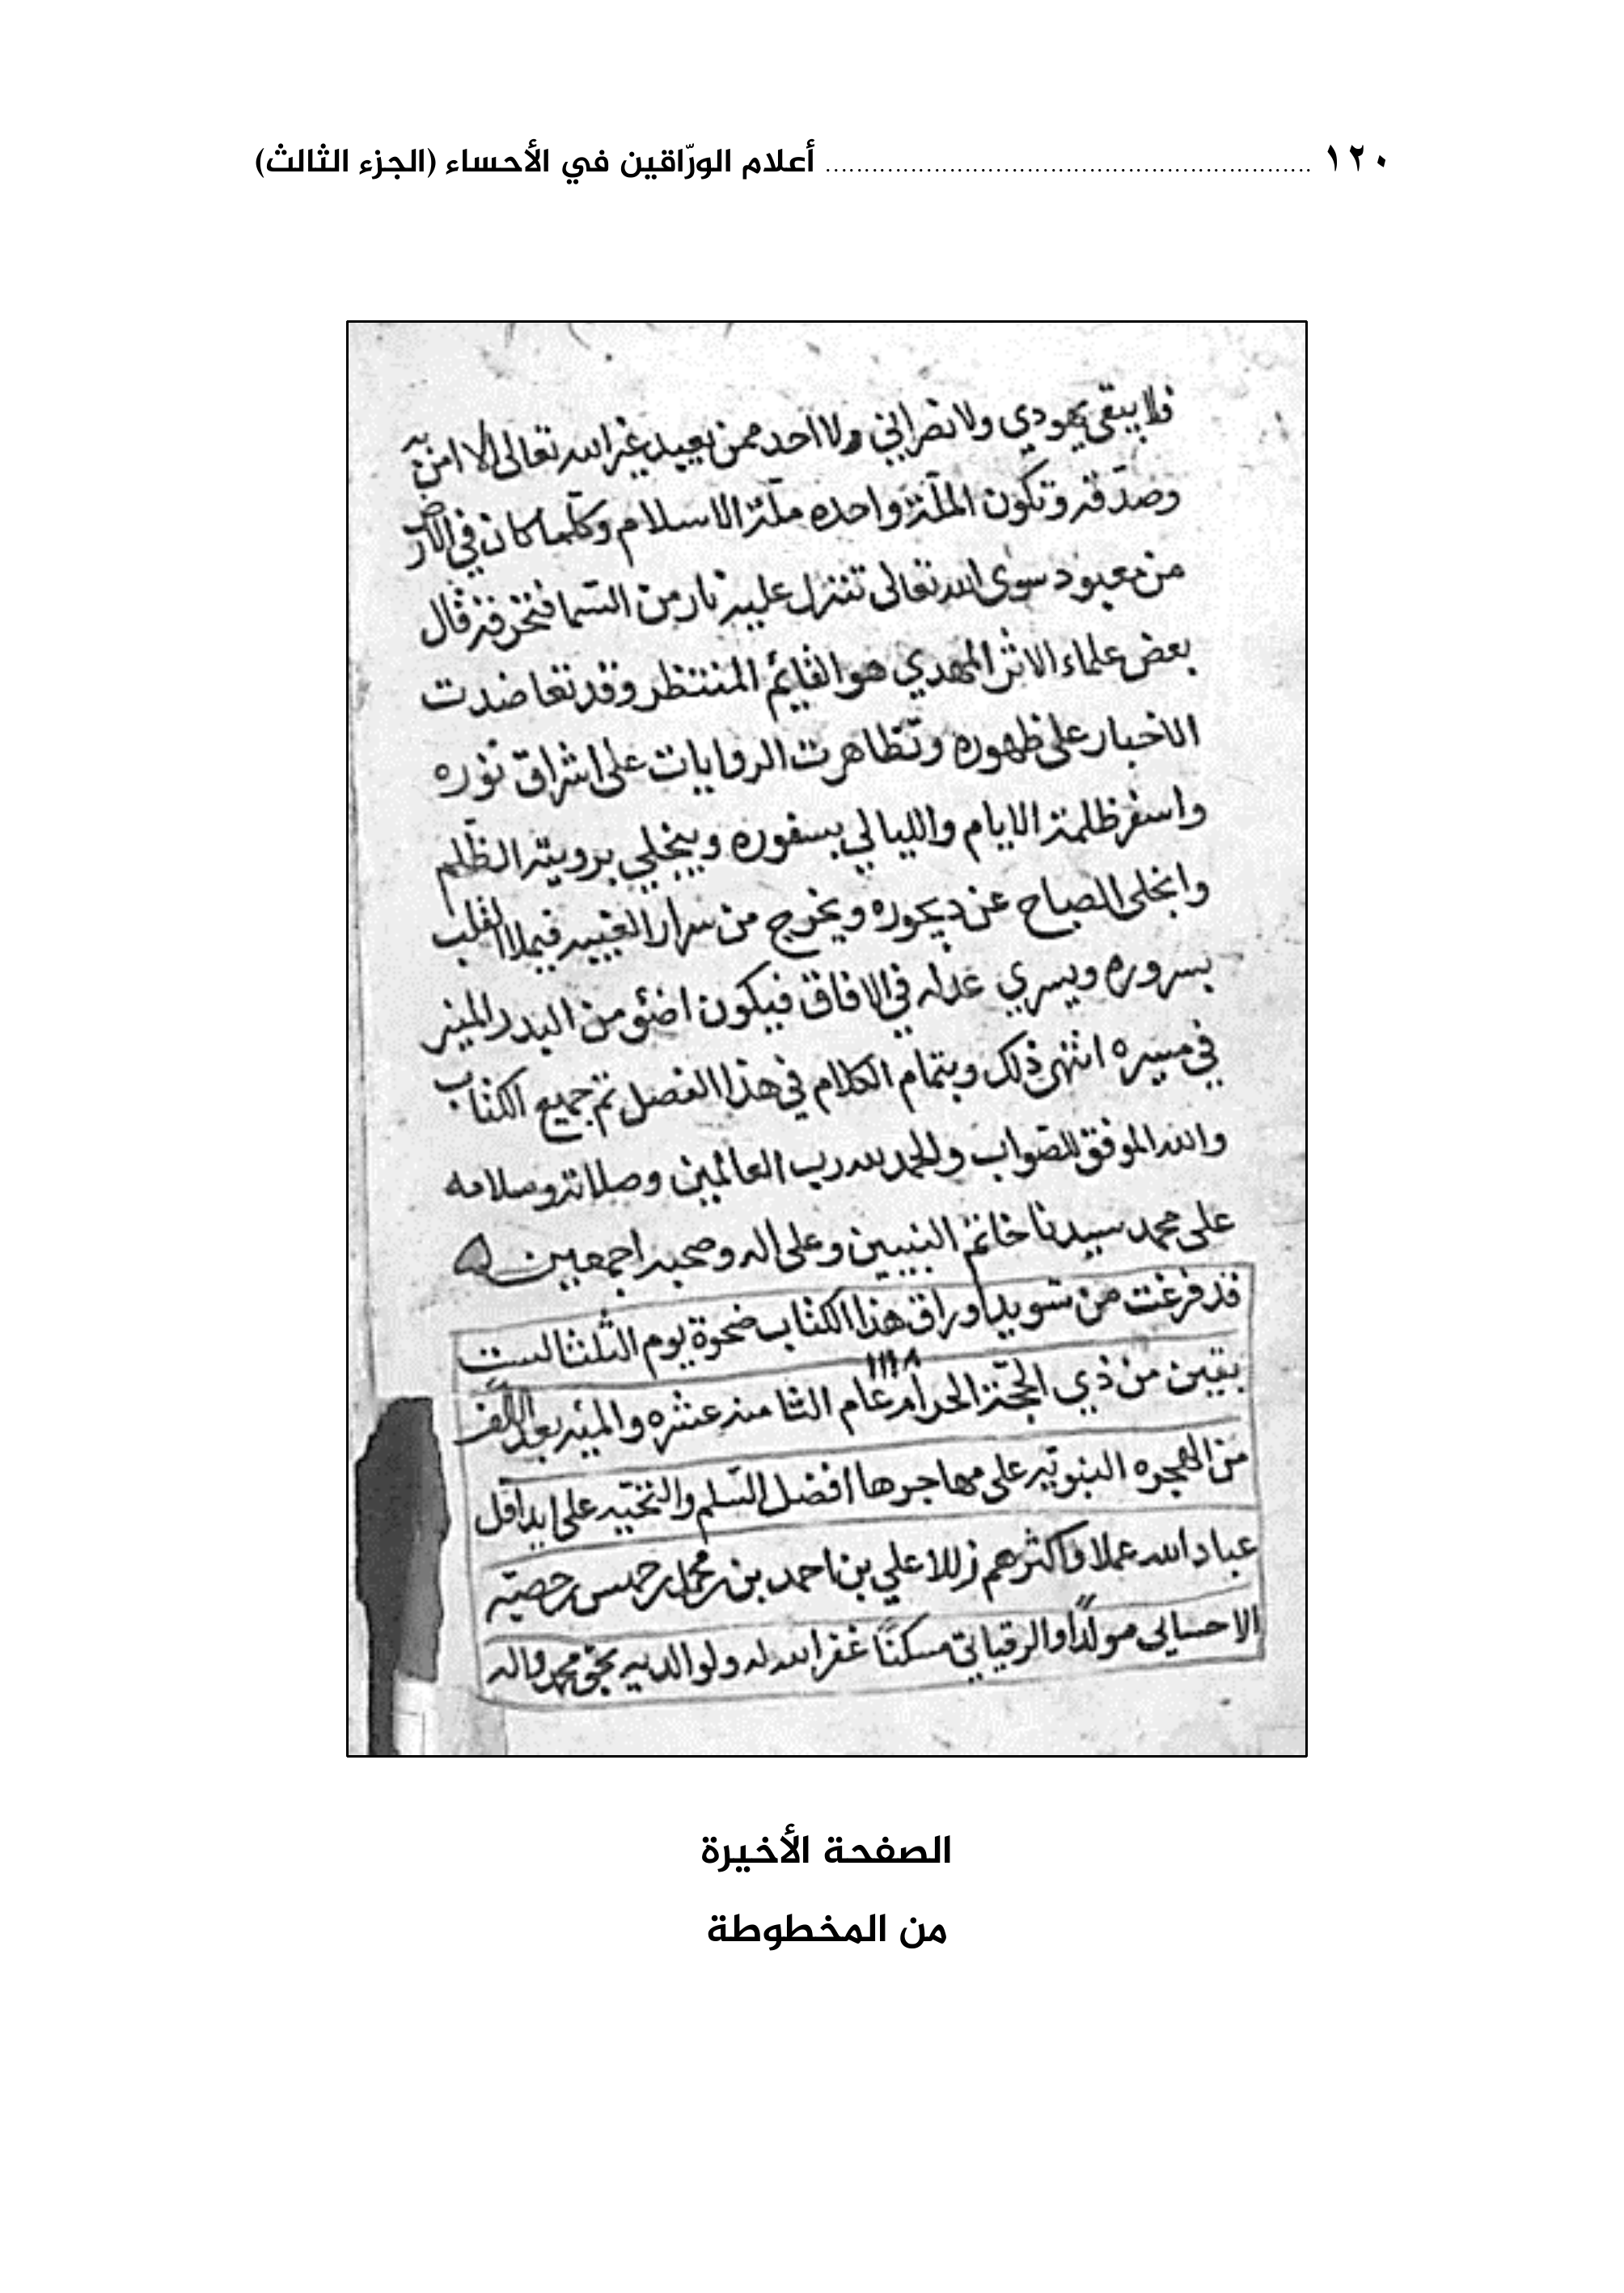 ١٢٠ ........................................................ أعلام الورّاقين في الأحساء (الجزء الثالث)
فلا يبقى يهودي ولا نصراني ولا احد ممن يعبد غير الله تعالى الا امن به
وصدقه وتكون الملة واحده ملة الاسلام وكلما كان في الارض
من معبود سوى الله تعالى تنزل عليه نار من السما فتحرقه قال
بعض علماء الاثر المهدي هو القايم المنتظر وقد تعاضدت
الاخبار على ظهوره وتظاهرت الروايات على اشراق نوره
واسفر ظلمة الايام والليالي بسفوره وينجلي برويته الظلم
وانجلى الصباح عن ديجوره ويخرج من سرار الغيبه فيملا القلب
بسروره ويسري عدله في الافاق فيكون اضؤ من البدر المنير
في مسيره انتهى ذلك وبتمام الكلام في هذا الفصل تم جميع الكتاب
والله الموفق للصواب والحمد لله رب العالمين وصلاته وسلامه
على محمد سيدنا خاتم النبيين وعلى اله وصحبه اجمعين
قد فرغت من تسويد اوراق هذا الكتاب ضحوة يوم الثلثا لست
بقين من ذي الحجة الحرام عام ١١١٨ الثامنه عشره والمئيه بعد الالف
من الهجره النبويه على مهاجرها افضل السلم والتحيه على يد اقل
عباد الله عملا واكثرهم زللا علي بن احمد بن محمد بن خميس
الاحسايى مولدًا والرقياتي مسكنًا غفر الله له ولوالديه بحق محمد واله
الصفحة الأخيرة
من المخطوطة